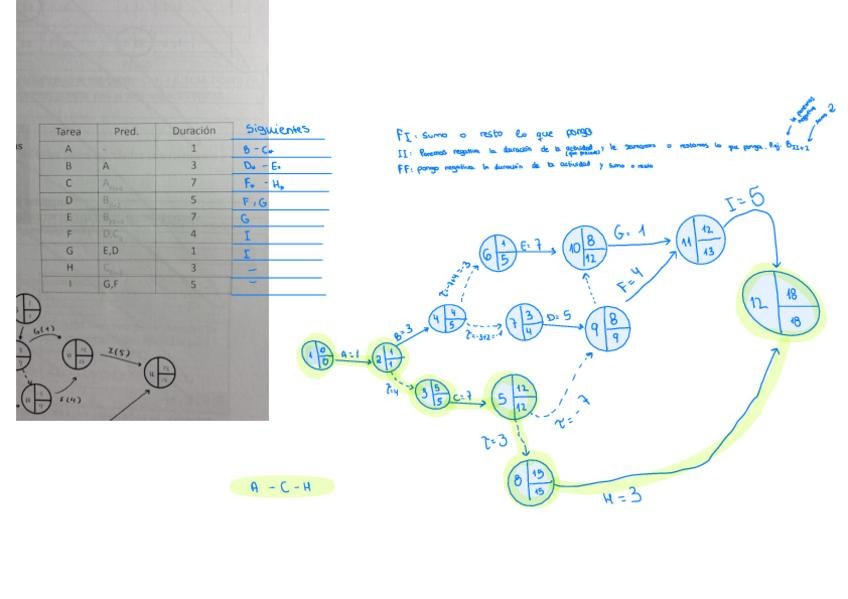 Tarea Pred. Duración Siguientes
A - 1 B - C
B A 3 D - E
C A 7 F - H
D B 5 F, G
E B 7 G
F D,C 4 I
G E,D 1 I
H C 3 -
I G,F 5 -
FI: Sumo o resto lo que ponga
II: Ponemos negativa la duración de la actividad y le sumamos o restamos lo que ponga. Ej: B II+2
FF: pongo negativa la duración de la actividad y sumo o resto
la ponemos negativa
sumo 2
I=5
6 1 5
E=7
10 8 12
G=1
11 12 13
F=4
12 18 18
τ=-7+4=-3
4 4 5
B=3
τ=-3+2=-1
7 3 4
D=5
9 8 9
1 0 0
A=1
2 1 1
τ=4
3 5 5
C=7
5 12 12
τ=-7
τ=3
8 15 15
H=3
A - C - H
G(1)
I(5)
F(4)